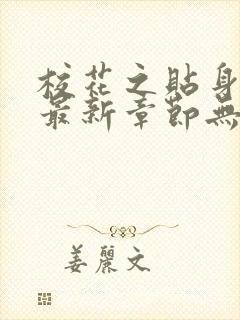 校花之貼身
最新章節無
姜麗文